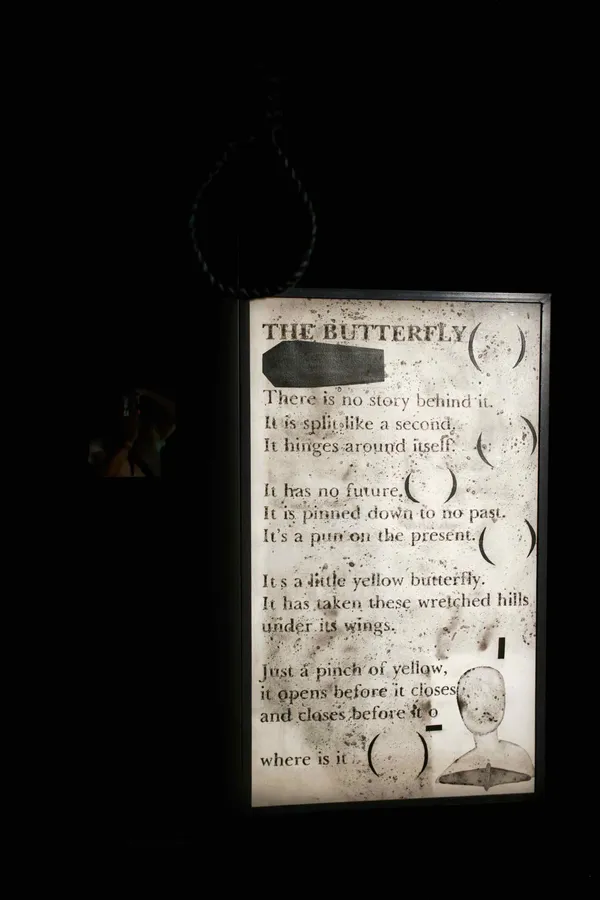 THE BUTTERFLY( )
There is no story behind it.
It is split like a second.
It hinges around itself. ( )
It has no future.( )
It is pinned down to no past.
It's a pun on the present. ( )
Its a little yellow butterfly.
It has taken these wretched hills
under its wings.
Just a pinch of yellow,
it opens before it closes
and closes before it o
where is it ( )